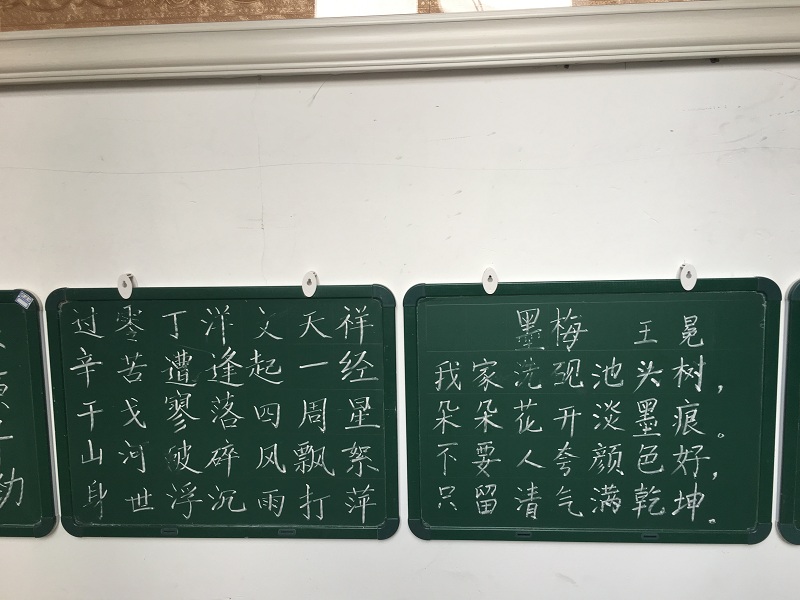 过零丁洋文天祥
辛苦遭逢起一经
干戈寥落四周星
山河破碎风飘絮
身世浮沉雨打萍
墨梅 王冕
我家洗砚池头树，
朵朵花开淡墨痕。
不要人夸颜色好，
只留清气满乾坤。